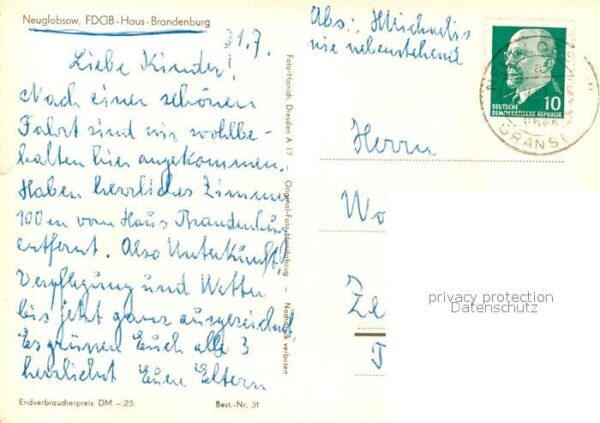 Neuglobsow, FDGB-Haus-Brandenburg
1.7.
Liebe Kinder!
Nach einer schönen
Fahrt sind wir wohlbe-
halten hier angekommen.
Haben herrliches Zimmer
100 m vom Haus Brandenburg
entfernt. Also Unterkunft,
Verpflegung und Wetter
bis jetzt ganz ausgezeichnet
Es grüssen Euch alle 3
herzlichst Eure Eltern
Endverbraucherpreis DM -.25
Best.-Nr. 31
Foto-Hanich, Dresden A 17 Original-Foto-Handabzug - Nachdruck verboten
Abs.:
wie nebenstehend
DEUTSCHE
DEMOKRATISCHE REPUBLIK
10
GRANSEE
Herrn
Wo
Ze
privacy protection
Datenschutz